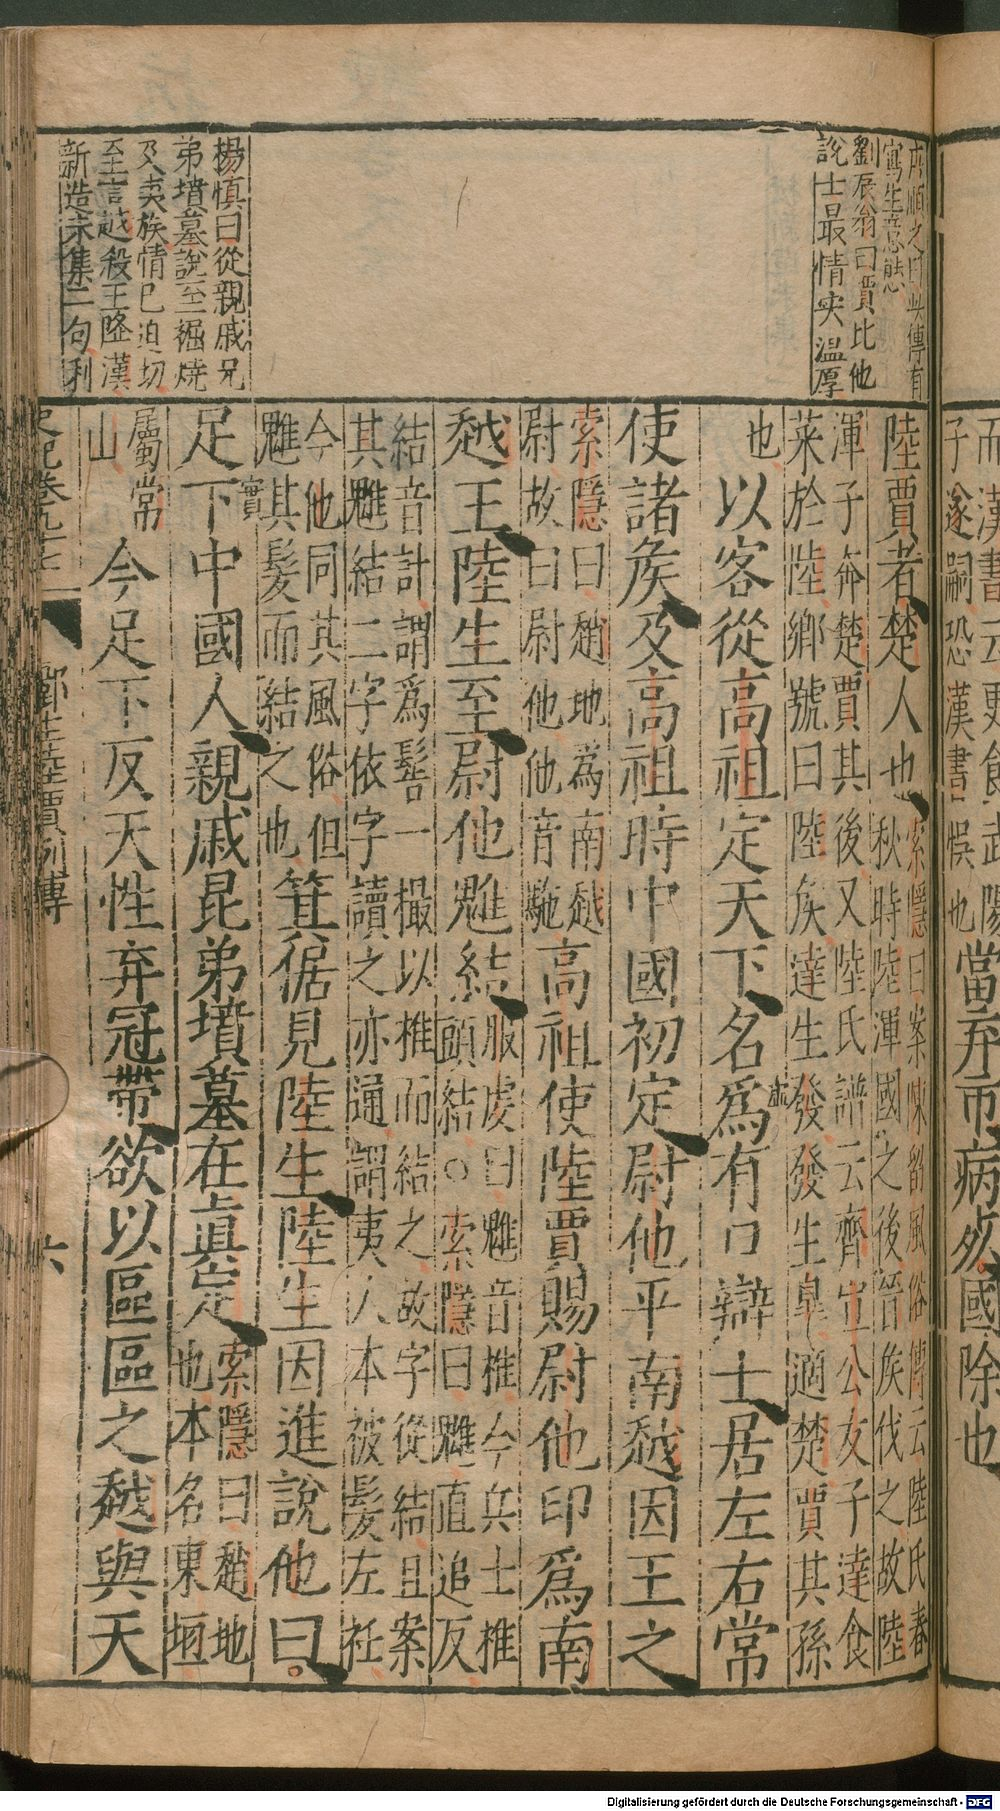 而漢書云更食武陽
子遂嗣恐漢書悞也
當弃市病死國除也
唐順之曰此傳有
寫生意態
劉辰翁曰賈比他
說士最情实溫厚
楊慎曰從親戚兄
弟墳墓說至掘燒
及夷族情已迫切
至言越殺王降漢
新造未集二句利
陸賈者楚人也
索隱曰案陳留風俗傳云陸氏春
秋時陸渾國之後晉侯伐之故陸
渾子奔楚賈其後又陸氏譜云齊宣公友子達食
菜於陸鄉號曰陸侯達生發發生臯適楚賈其孫
也
以客從高祖定天下名爲有口辯士居左右常
使諸侯及高祖時中國初定尉他平南越因王之
索隱曰趙地爲南越
尉故曰尉他他音馳
高祖使陸賈賜尉他印爲南
越王陸生至尉他魋結
服虔曰魋音椎今兵士椎
頭結○索隱曰魋直追反
結音計謂爲髻一撮以椎而結之故字從結且案
其魋結二字依字讀之亦通謂夷人本被髮左衽
今他同其風俗但
魋其髮而結之也
箕倨見陸生陸生因進說他曰
足下中國人親戚昆弟墳墓在眞定
實
索隱曰趙地
也本名東垣
屬常
山
今足下反天性弃冠帶欲以區區之越與天
史記卷九十七
酈生陸賈列傳
六
Digitalisierung gefördert durch die Deutsche Forschungsgemeinschaft - DFG